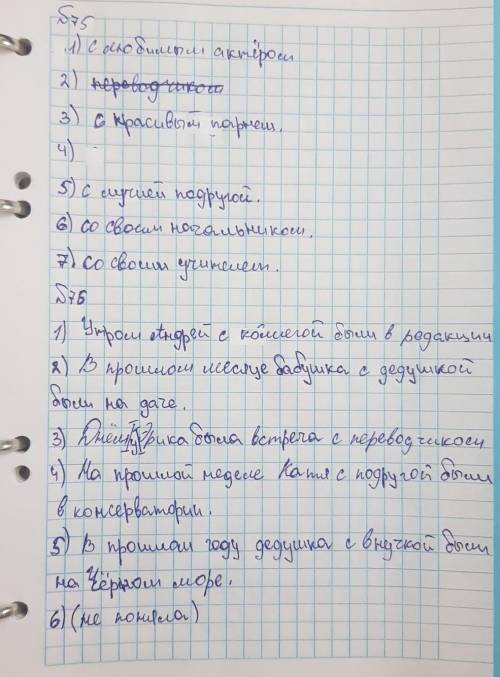 №75
1) с любимым актёром
2) переводчиком
3) с красивым парнем.
4)
5) с лучшей подругой.
6) со своим начальником.
7) со своим учителем.
№76
1) Утром Андрей с коллегой были в редакции
2) В прошлом месяце бабушка с дедушкой
были на даче.
3) Днём рика была встреча с переводчиком
4) На прошлой неделе Катя с подругой были
в консерватории.
5) В прошлом году дедушка с внучкой были
на Чёрном море.
6) (не поняла)